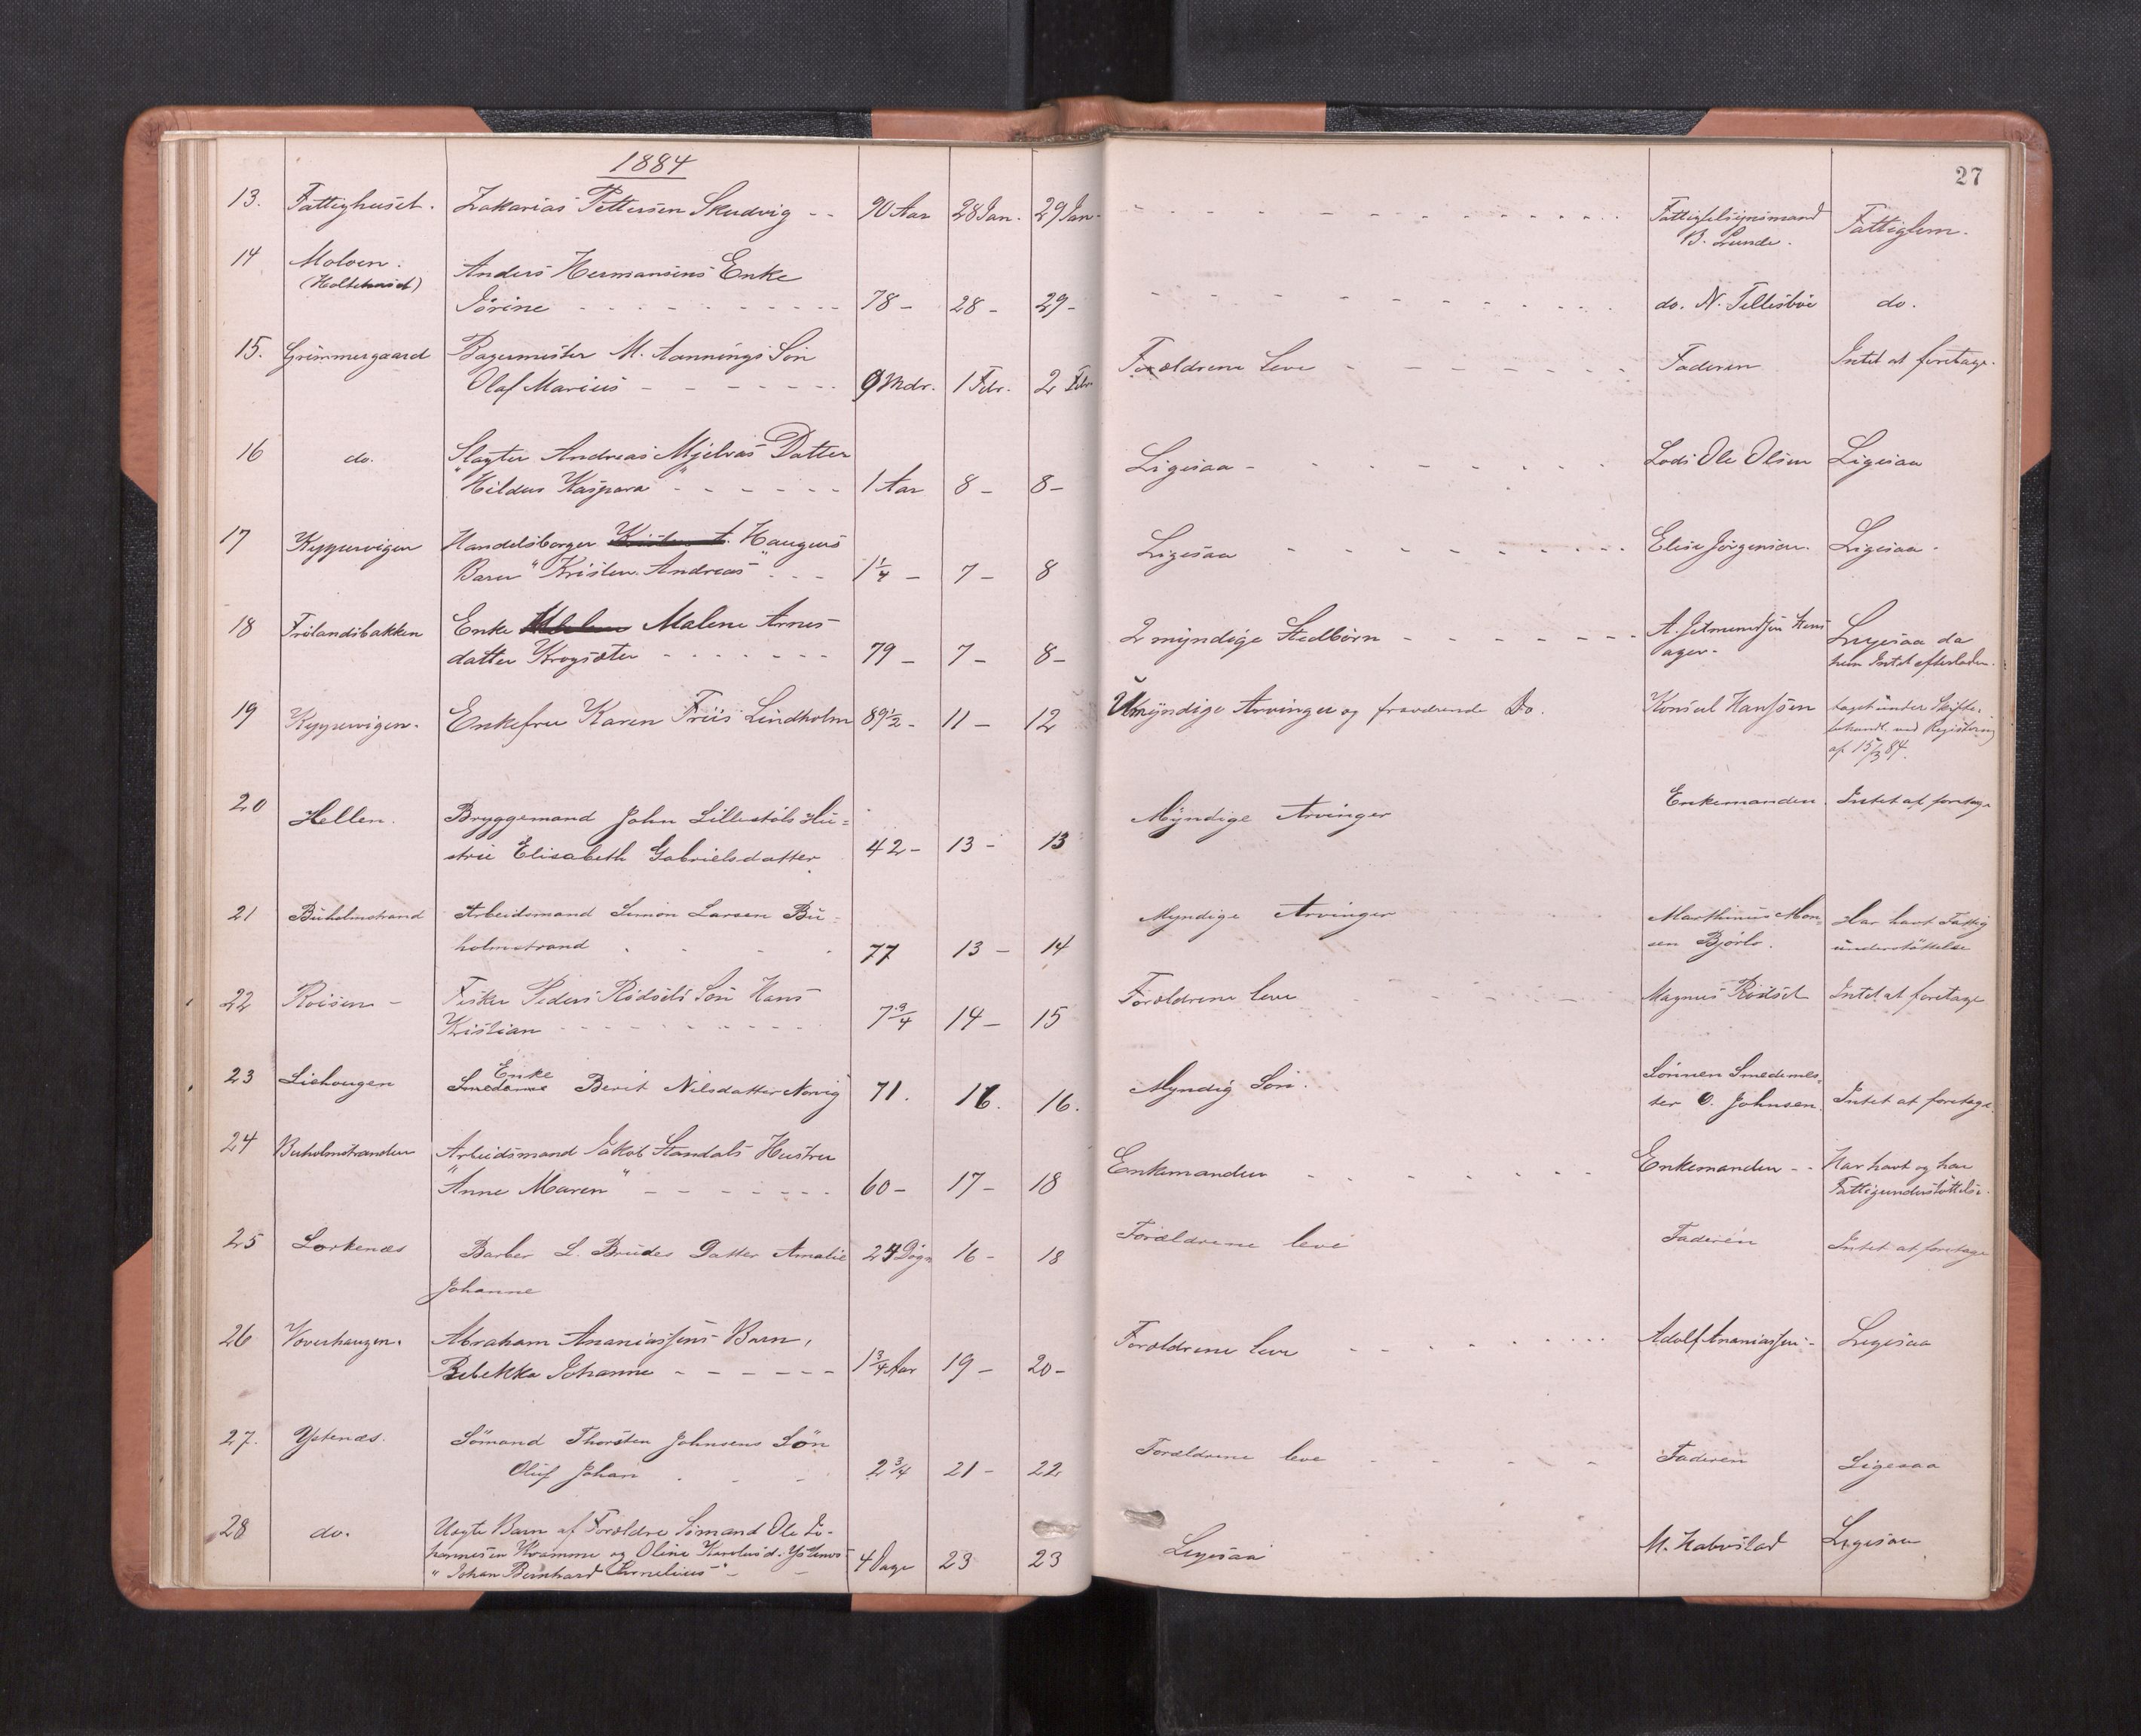 1884
27
13. Fattighuset. Zakarias Pettersen Skudvig 90 Aar 28 Jan. 29 Jan. Fattigtilsynsmand Fattiglem.
B. Lunde.
14 Moloen. Anders Hermansens Enke
Sørine 78 - 28 - 29 - do. N. Tellisbøe do.
15. Grimmergaard Bagermester M. Aannings Søn Forældrene leve Faderen Intet at foretage.
Olaf Marius 9 Mdr. 1 Febr. 2 Febr.
16 do. Slagter Andreas Mjelvas Datter Ligesaa Lods Ole Olsen Ligesaa
"Hildur Kaspara" 1 Aar 8 - 8 -
17 Kippervigen Handelsborger Haugens Ligesaa Elise Jørgensen. Ligesaa.
Barn "Kristen Andreas" 1 1/4 - 7 - 8
18 Frølandsbakken Enke Malene Arnes- 2 myndige Stedbørn Ligesaa da
datter Krogsæter 79 - 7 - 8 - ager. hun Intet efterlader.
19 Kippervigen. Enkefru Karen Friis Lindholm 89 1/2 - 11 - 12 Umyndige Arvinger og fraværende Do. Konsul Hanssen taget under Skifte-
behandl. ved Registrering
af 15/3 84.
20 Hellen. Bryggemand John Lillestøls Hu= Myndige Arvinger Enkemanden. Intet at foretage
stru Elisabeth Gabrielsdatter. 42 - 13 - 13
21 Buholmstrand Arbeidsmand Simon Larsen Bu- Myndige Arvinger Marthinus Mon- Har havt Fattig
holmstrand 77 13 - 14 sen Bjørlo. understøttelse
22 Røisen - Fisker Peders Rødsets Søn Hans Forældrene leve Magnus Rødset Intet at foretage
Kristian 7 3/4 14 - 15
23 Liehougen Enke Berit Nilsdatter Norvig 71. 16. 16. Myndig Søn. Sønnen Smedemes-
ter O. Johnsen. Intet at foretage.
24 Buholmstranden Arbeidsmand Jakob Standals Hustru Enkemanden Enkemanden - - Har havt og har
"Anne Maren" 60 - 17 - 18 Fattigunderstøttelse.
25 Lorkenæs Barber L. Brudes Datter Amalie 24 Døgn 16 - 18 Forældrene leve Faderen Intet at foretage
Johanne
26 Voverhaugen. Abraham Ananiassens Barn, Forældrene leve Adolf Ananiassen - Ligesaa
Rebekka Johanne 1 3/4 Aar 19 - 20 -
27. Ystenæs. Sömand Thorsten Johnsens Søn Forældrene leve Faderen Ligesaa
Oluf Johan 2 3/4 21 - 22
28 do. Uægte Barn af Forældre Sømand Ole Jo- Ligesaa M. Halvstad Ligesaa
hannesen Kramme og Oline Karolusd. Ystenæs
"Johan Bernhard Kornelius" 4 Dage 23 23